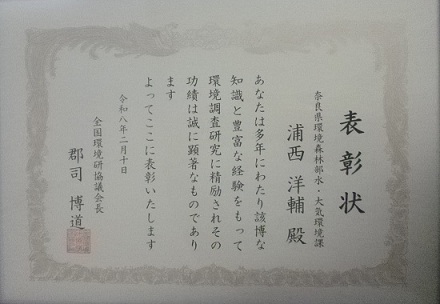 表彰状
奈良県環境森林部水・大気環境課
浦西 洋輔 殿
あなたは多年にわたり該博な
知識と豊富な経験をもって
環境調査研究に精励されその
功績は誠に顕著なものであり
ます
よってここに表彰いたします
令和八年二月十日
全国環境研協議会長
郡司 博道